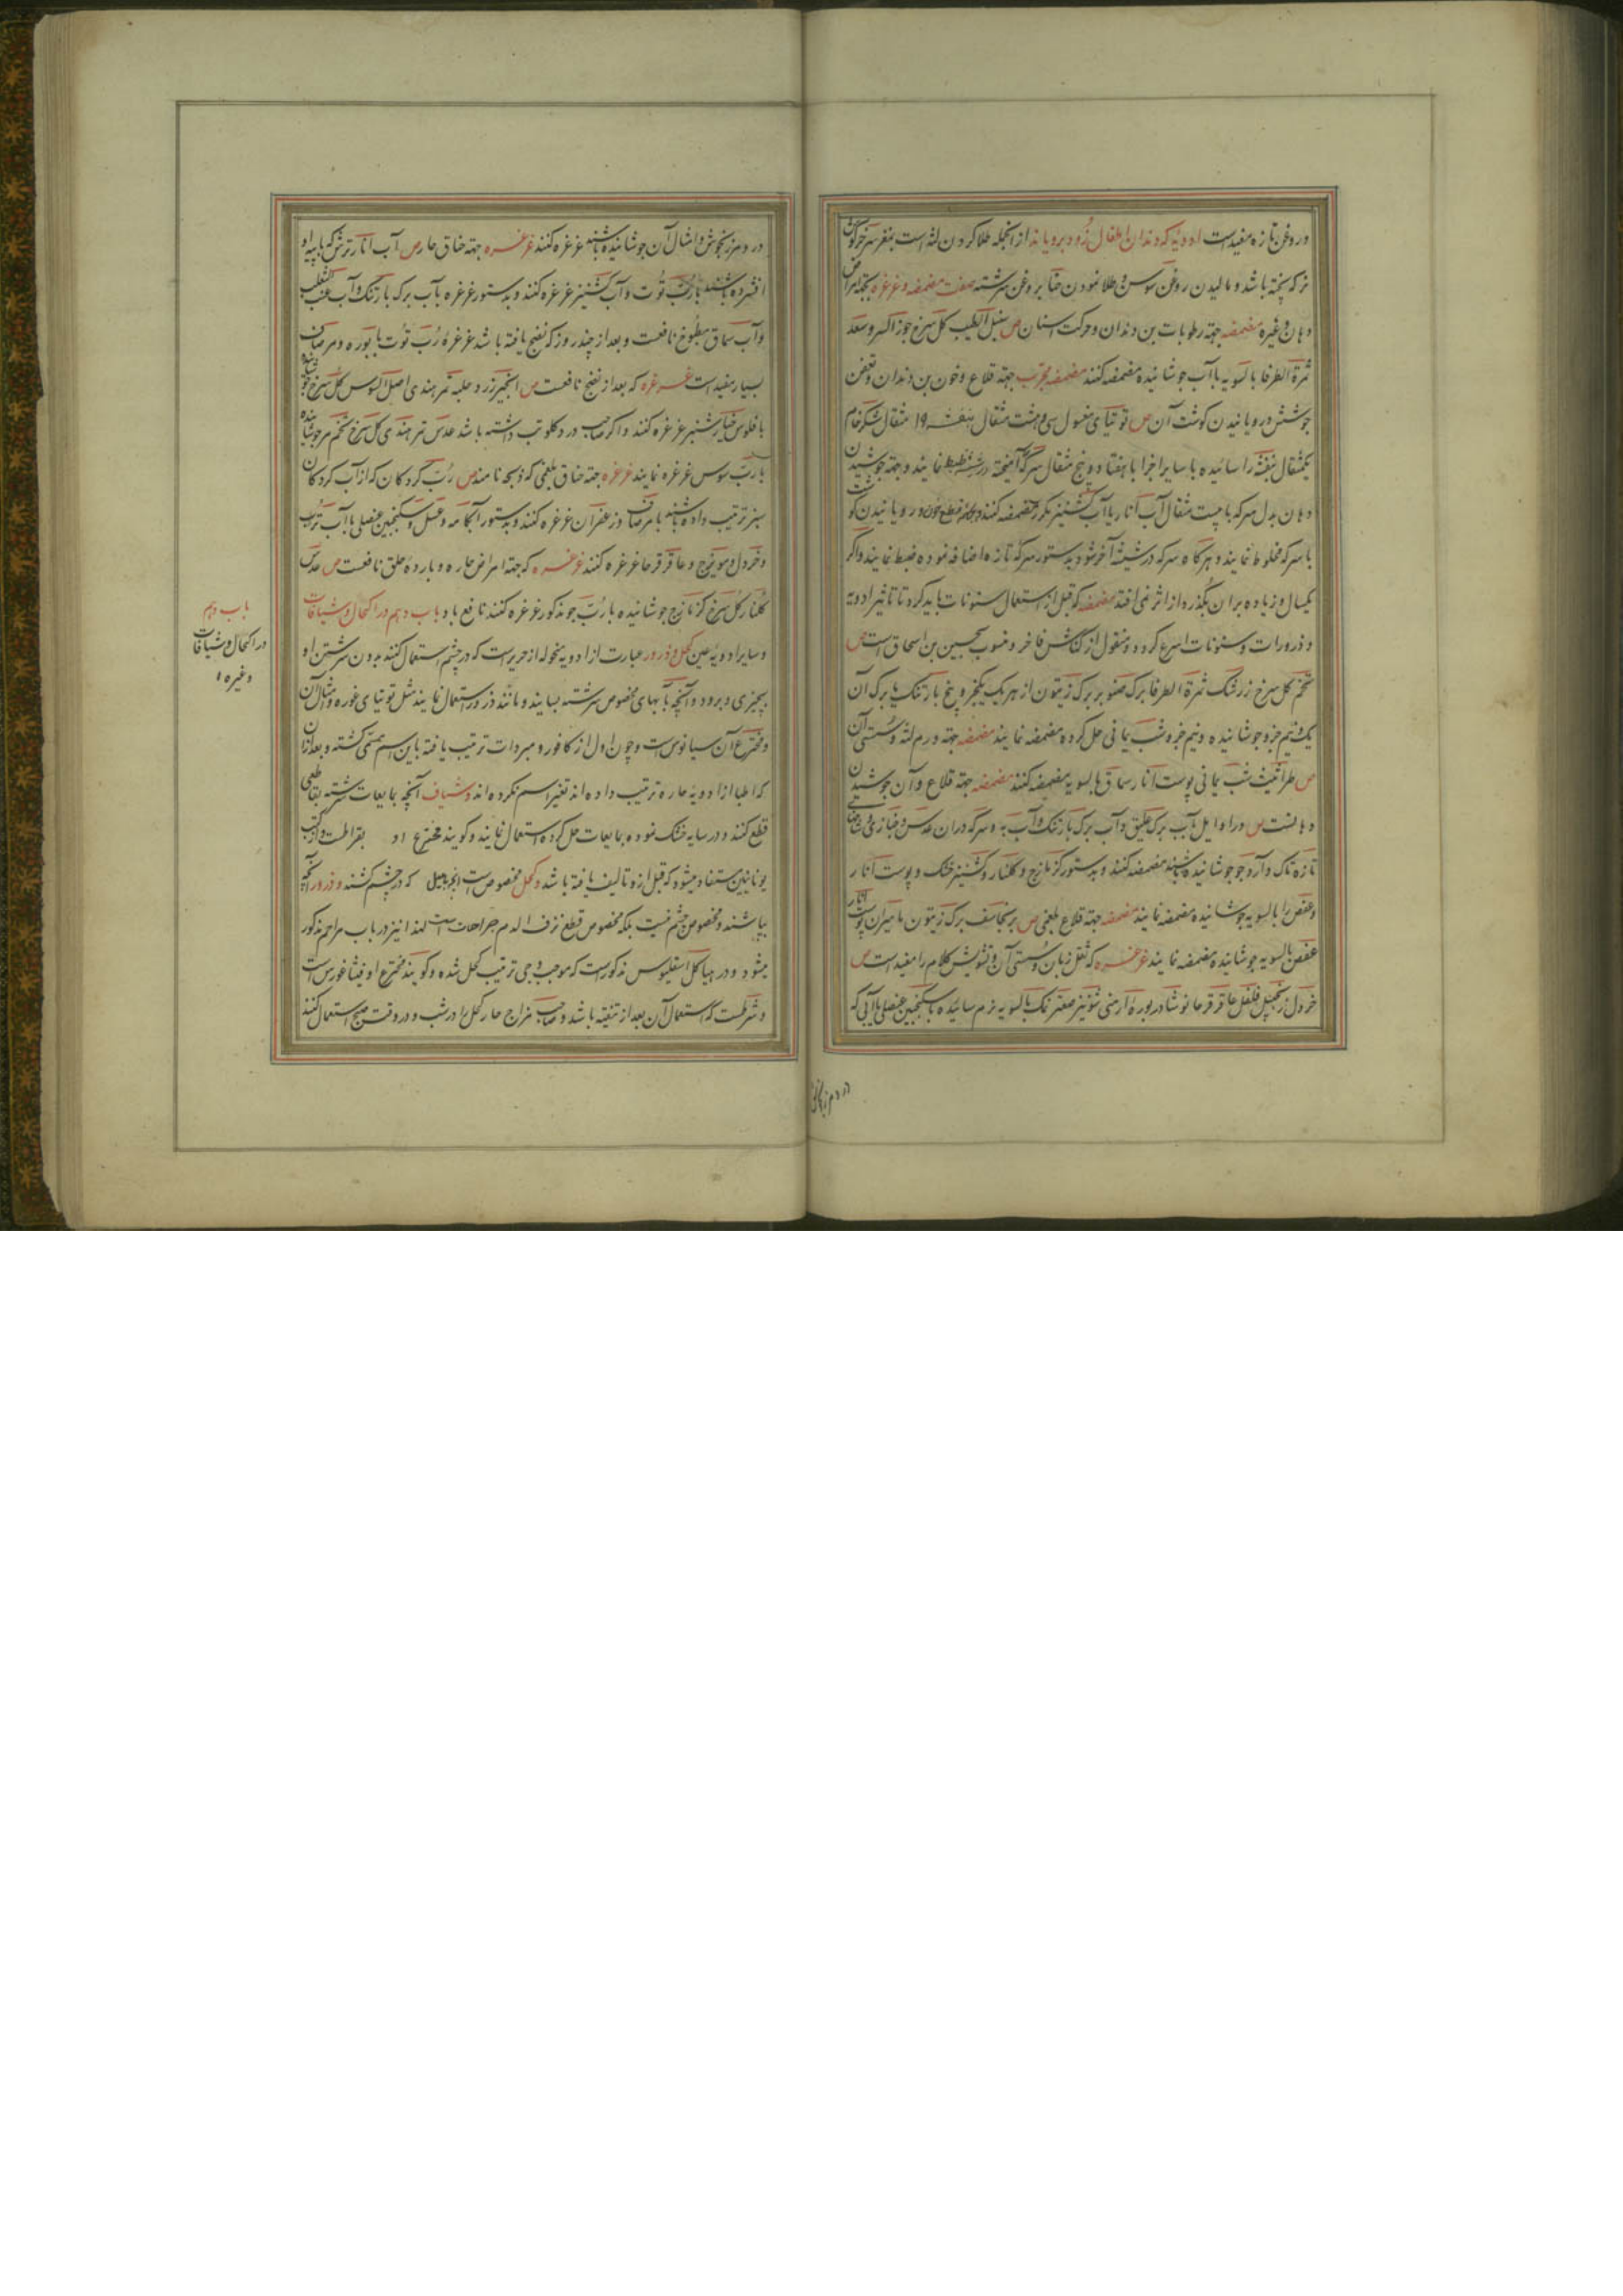 و روغن تازه مفیدست ادویه که دندان اطفال زود برویاند از انجمله طلا کردن لثه است بمغز سر خرگوش
که پخته باشد و مالیدن روغن سوسن و طلا نمودن حنا بروغن سرشته صفت مضمضه و غرغره بجهة امراض
دهان و غیره مضمضه جهة رطوبات بن دندان و حرکت اسنان ص سنبل الطیب کل سرخ جوز السرو سعد
ثمرة الطرفا بالسویه با آب جوشانیده مضمضه کنند مضمضه مجرب جهة قلاع و خون بن دندان و تعفن
جوشش و رویانیدن کوشت آن ص توتیای مغسول سی و هشت مثقال بنفشه ۱۹ مثقال شکر خام
یکمثقال بنفشه را سائیده با سایر اجزا با هفتاد و پنج مثقال سرکه آمیخته در شیشه ضبط نمایند و جهة جوشیدن
دهان بدل سرکه با بیست مثقال آب انار یا آب کشنیز مکرر مضمضه کنند و جهة قطع خون و رویانیدن کوشت
با سرکه مخلوط نمایند و هرکاه سرکه در شیشه آخر شود بدستور سرکه تازه اضافه نموده ضبط نمایند و اکر
یکسال و زیاده بران بگذرد از اثر نمی افتد مضمضه که قبل از استعمال سنونات باید کرد تا تاثیر ادویه
و ذرورات و سنونات اسرع کردد و منقول از کناش فاخر و منسوب بحبین بن اسحاق است ص
تخم کل سرخ زرشک ثمرة الطرفا برک صنوبر برک زیتون از هر یک یکجزو بیخ بارتنک یا برک آن
یک و نیم جزو جوشانیده و نیم جزو شب یمانی حل کرده مضمضه نمایند مضمضه جهة ورم لثه و سستی آن
ص طراثیث شب یمانی پوست انار سماق بالسویه مضمضه کنند مضمضه جهة قلاع و آن جوشیدن
دهانست ص در اوایل بآب برک علیق و آب برک بارتنک و آب به و سرکه دران عدس و خبازی و شاخهای
تازه تاک و آرد جو جوشانیده باشند مضمضه کنند و بدستور کزمازج و کلنار و کشنیز خشک و پوست انار
و عفص را بالسویه جوشانیده مضمضه نمایند مضمضه جهة قلاع بلغمی ص برنجاسف برک زیتون مامیران پوست انار
عفص بالسویه جوشانیده مضمضه نمایند غرغره که ثقل زبان و سستی آن و تشویش کلام را مفیدست ص
خردل زنجبیل فلفل عاقرقرحا نوشادر بوره ارمنی شونیز صعتر نمک بالسویه نرم سائیده با سکنجبین عنصلی یا آبی که
در و مرزنجوش
در و مرزنجوش و امثال آن جوشانیده باشند غرغره کنند غرغره جهة خناق حار ص آب انار ترش که با پیه او
افشرده باشند با رب توت و آب کشنیز غرغره کنند و بدستور غرغره بآب برک بارتنک و آب عنب الثعلب
و آب سماق مطبوخ نافعست و بعد از چند روز که نضج یافته باشد غرغره رب توت با بوره و مر صاف
بسیار مفیدست غرغره که بعد از نضج نافعست ص انجیر زرد حلبه تمر هندی اصل السوس کل سرخ جوشانیده
با فلوس خیار شنبر غرغره کنند و اکر صاحب درد کلو تب داشته باشد عدس تمر هندی کل سرخ تخم مرو جوشانیده
با رب سوس غرغره نمایند غرغره جهة خناق بلغمی که ذبحه نامند ص رب کردکان که از آب کردکان
سبز ترتیب داده باشند با مر صاف و زعفران غرغره کنند و بدستور آبکامه و عسل و سکنجبین عنصلی با آب ترب
و خردل و مویزج و عاقرقرحا غرغره کنند غرغره که جهة امراض حاره و بارده حلق نافعست ص عدس
کلنار کل سرخ کزمازج جوشانیده با رب جوز مذکور غرغره کنند نافع باد باب دهم در اکحال و شیافات
و سایر ادویه عین کحل و ذرور عبارت از ادویه منخوله از حریر است که در چشم استعمال کنند بدون سرشتن او
بچیزی و برود و آنچه بآبهای مخصوص سرشته بسایند و مانند ذرور استعمال نمایند مثل توتیای غوره و امثال آن
و مخترع آن سیانوس است و چون اول از کافور و مبردات ترتیب یافته باین اسم مسمی کشته و بعد ازان
که اطبا از ادویه حاره ترتیب داده اند تغیر اسم نکرده اند و شیاف آنچه بمایعات سرشته بقاطعی
قطع کنند و در سایه خشک نموده بمایعات حل کرده استعمال نمایند و کویند مخترع او بقراطست و از کتب
یونانیین مستفاد میشود که قبل ازو تالیف یافته باشد و کحل مخصوص است آنچه بمیل که در چشم کشند و ذرور آنچه
بپاشند و مخصوص چشم نیست بلکه مخصوص قطع نزف الدم جراحات است لهذا نیز در باب مراهم مذکور
میشود و در هیاکل اسقلیبوس مذکورست که موجب وحی ترتیب کحل شده و کویند مخترع او فیثاغورس است
و شرطست که استعمال آن بعد از تنقیه باشد و صاحب مزاج حار کحل را در شب و در وقت صبح استعمال کنند
باب دهم
در اکحال و شیافات
و غیره